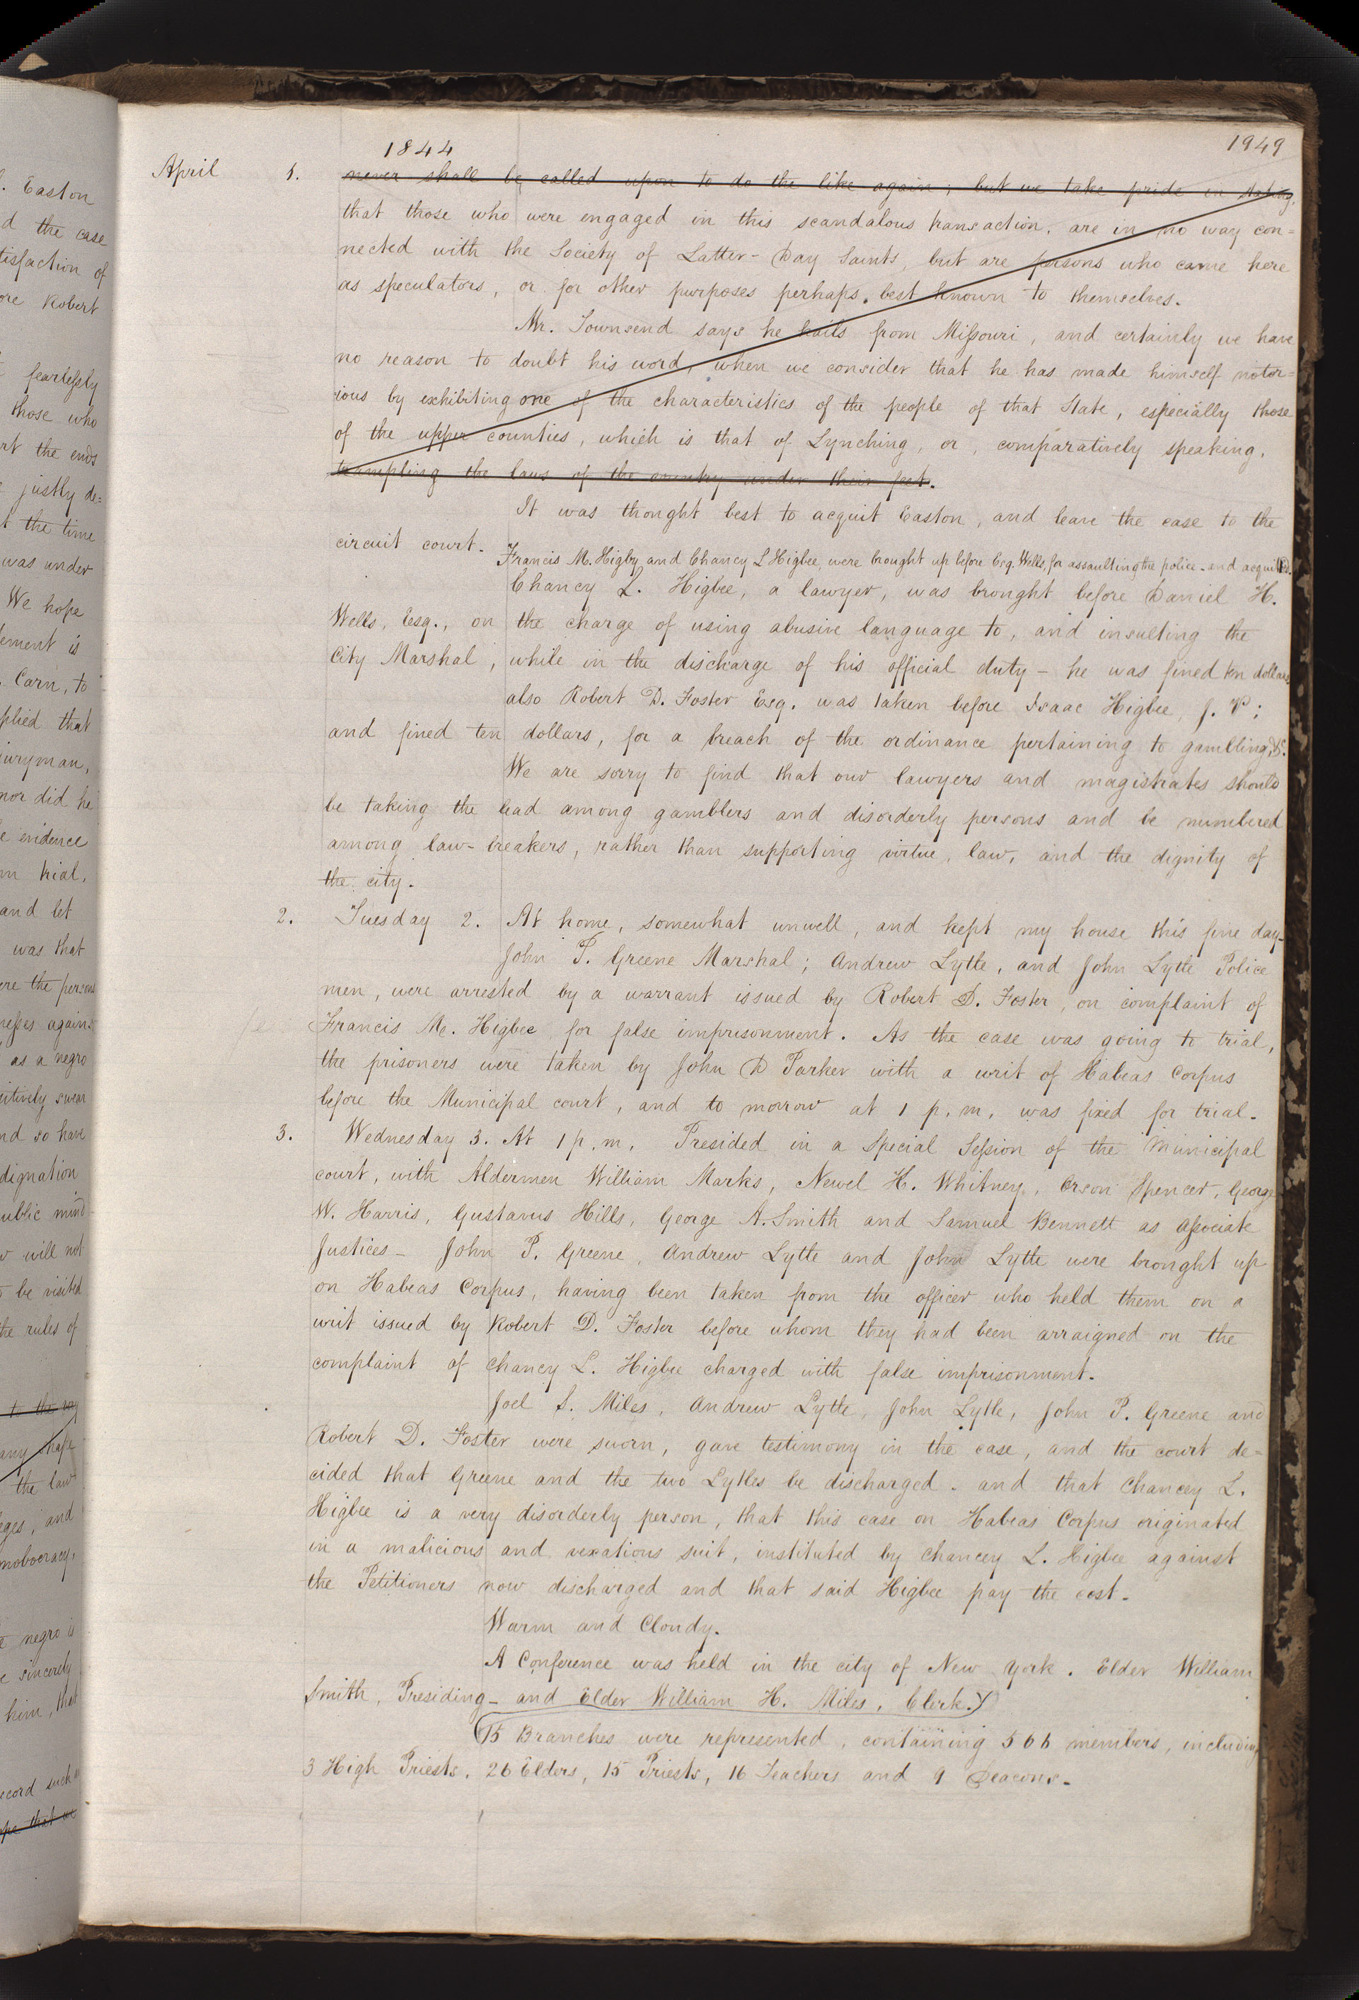 1844
1949
April 1. never shall be called upon to do the like again; but we take pride in stating,
that those who were engaged in this scandalous transaction, are in no way con=
nected with the Society of Latter-Day Saints, but are persons who came here
as speculators, or for other purposes perhaps, best known to themselves.
Mr. Townsend says he hails from Missouri, and certainly we have
no reason to doubt his word, when we consider that he has made himself notor=
ious by exhibiting one of the characteristics of the people of that State, especially those
of the upper counties, which is that of Lynching, or, comparatively speaking,
trampling the laws of the country under their feet.
It was thought best to acquit Easton, and leave the case to the
circuit court.
Francis M. Higby and Chancy L Higbee, were brought up before Esq. Wells, for assaulting the police - and acquitted.
Chancy L. Higbee, a lawyer, was brought before Daniel H.
Wells, Esq., on the charge of using abusive language to, and insulting the
City Marshal, while in the discharge of his official duty - he was fined ten dollars
also Robert D. Foster Esq. was taken before Isaac Higbee, J. P;
and fined ten dollars, for a breach of the ordinance pertaining to gambling, &c.
We are sorry to find that our lawyers and magistrates should
be taking the lead among gamblers and disorderly persons and be numbered
among law-breakers, rather than supporting virtue, law, and the dignity of
the city.
2. Tuesday 2. At home, somewhat unwell, and kept my house this fine day-
John P. Greene Marshal; Andrew Lytle, and John Lytle Police
men, were arrested by a warrant issued by Robert D. Foster, on complaint of
Francis M. Higbee for false imprisonment. As the case was going to trial,
the prisoners were taken by John D Parker with a writ of Habeas Corpus
before the Municipal court, and to morrow at 1 p. m. was fixed for trial.
3. Wednesday 3. At 1 p. m. Presided in a Special Session of the Municipal
court, with Aldermen William Marks, Newel K. Whitney, Orson Spencer, George
W. Harris, Gustavus Hills, George A. Smith and Samuel Bennett as associate
Justices- John P. Greene, Andrew Lytle and John Lytle were brought up
on Habeas Corpus, having been taken from the officer who held them on a
writ issued by Robert D. Foster before whom they had been arraigned on the
complaint of Chancy L. Higbee charged with false imprisonment.
Joel S. Miles, Andrew Lytle, John Lytle, John P. Greene and
Robert D. Foster were sworn, gave testimony in the case, and the court de=
cided that Greene and the two Lytles be discharged. and that Chancey L.
Higbee is a very disorderly person, that this case on Habeas Corpus originated
in a malicious and vexatious suit, instituted by Chancey L. Higbee against
the Petitioners now discharged and that said Higbee pay the cost.
Warm and Cloudy.
A Conference was held in the city of New York. Elder William
Smith, Presiding - and Elder William H. Miles, Clerk.
15 Branches were represented, containing 566 members, including
3 High Priests, 26 Elders, 15 Priests, 16 Teachers and 9 Deacons.